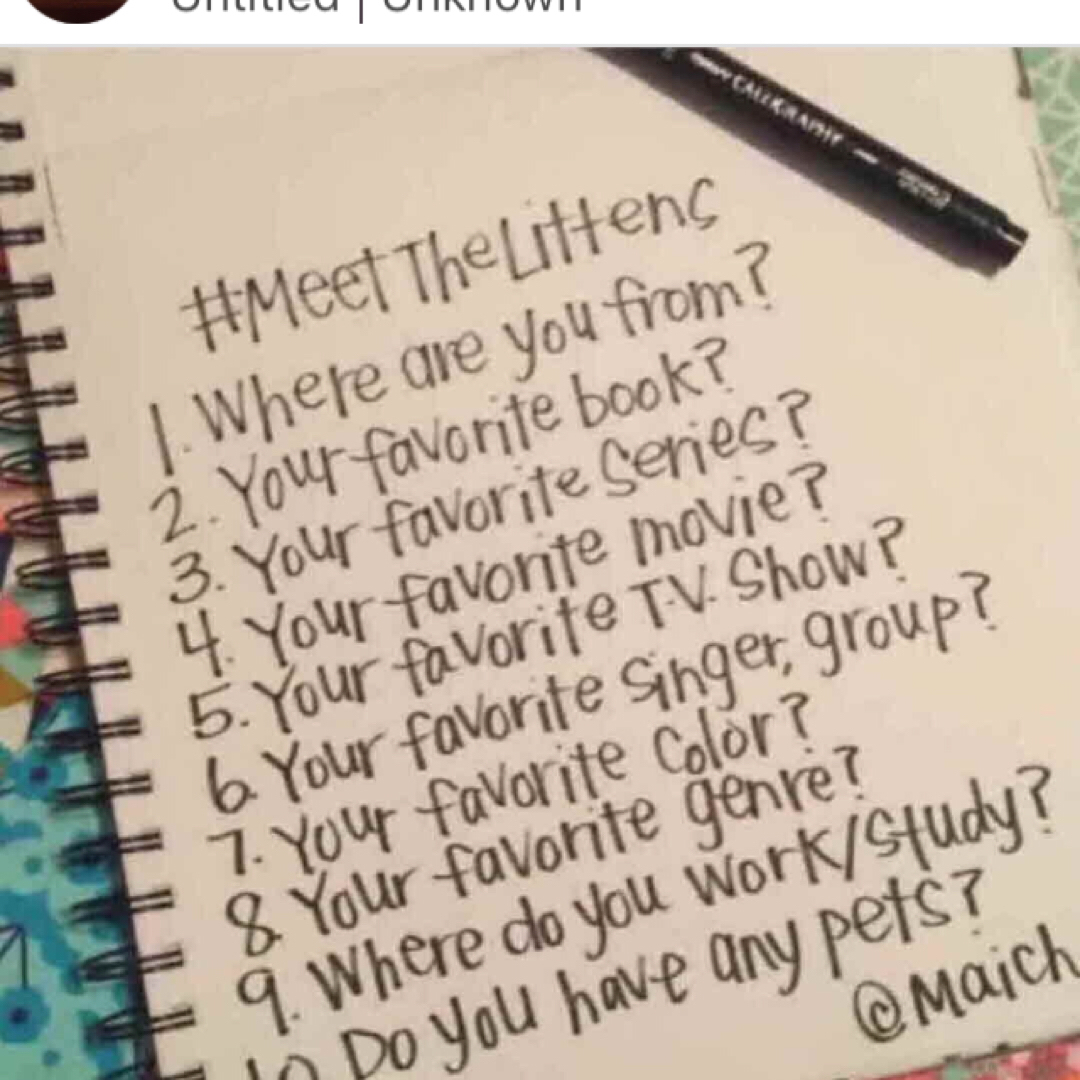 Untitled | Unknown
CALLIGRAPHY
#MeetTheLittens
1. Where are you from?
2. Your favorite book?
3. Your favorite Series?
4. Your favorite movie?
5. Your favorite T.V. Show?
6. Your favorite Singer, group?
7. Your favorite Color?
8. Your favorite genre?
9. Where do you work/study?
10. Do you have any pets?
@Maich